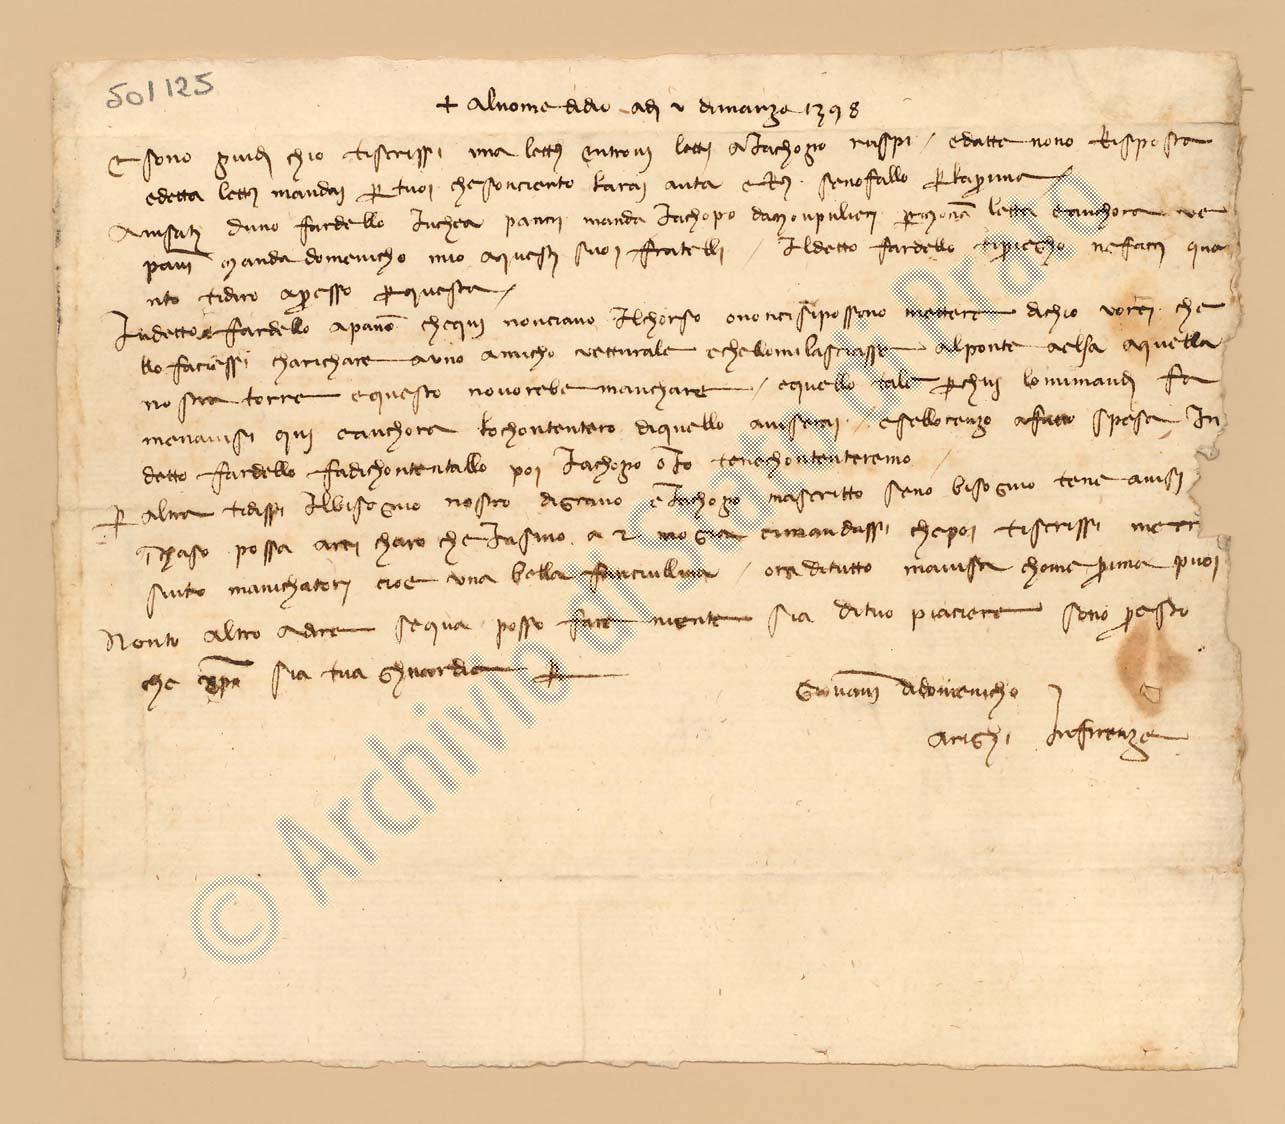 501125
+ Al nome di dio adi v di marzo 1398
E sono giudi chio ti scrissi una lett entrovi lett a Iachopo ruspi / e datte nono risposta
e detta lett mandai per tuoi che son ciento larai auta e se no fallo per la prima /
Avisati duno fardello in chea panni manda Iachopo da monpulieri per letta e anchora
panni manda domenicho mio a questi suoi fratelli / Il detto fardello ti priegho ne facci qua
nto ti diro apresso per questa /
In detto fardello a panno che qui non ciano Il chorso o non ci si possono mettere di chio vorei che
llo faciessi charichare a uno amicho vetturale e chello mi lasciasse al ponte a elsa a quella
nostra torre e questo no vorebe manchare / e quello tale per chui lo mi mandi fa
me navisi qui e anchora lo chontentero di quello aviserai / e se llorenzo a fatto spesa In
detto fardello fa di chontentallo poi Iachopo o Io te ne chontenteremo /
Per altra ti dissi Il bisogno nostro di grano e Iachopo ma scritto se no bisogno te ne avisi
possa arei charo che che poi ti scrissi
manichatori cioe una bella fanciullina / ora di tutto mavisa chome prima puoi
Non to altro a dire se qua posso fare niente sia di tuo piaciere sono presto
che xpo sia tua ghuardia per
Giovanni di domenicho
In firenze
© Archivio di Stato di Prato